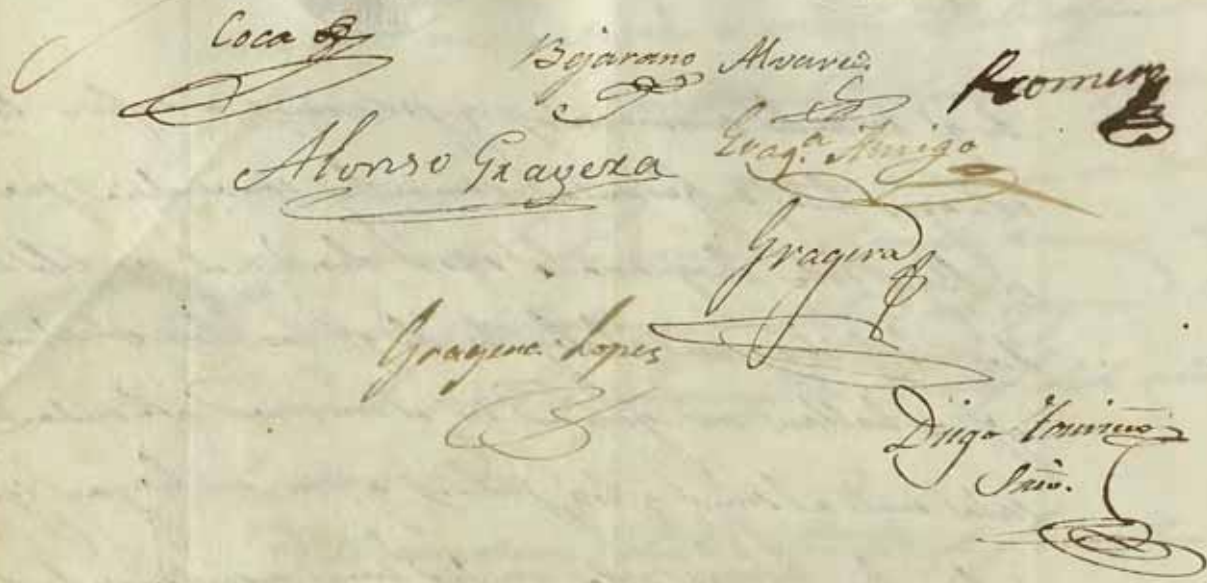 Coca
Bejarano Alvarez
Romero
Alonso Gragera
Grag.ª Amigo
Gragera
Gragera Lopes
Diego
Srio.